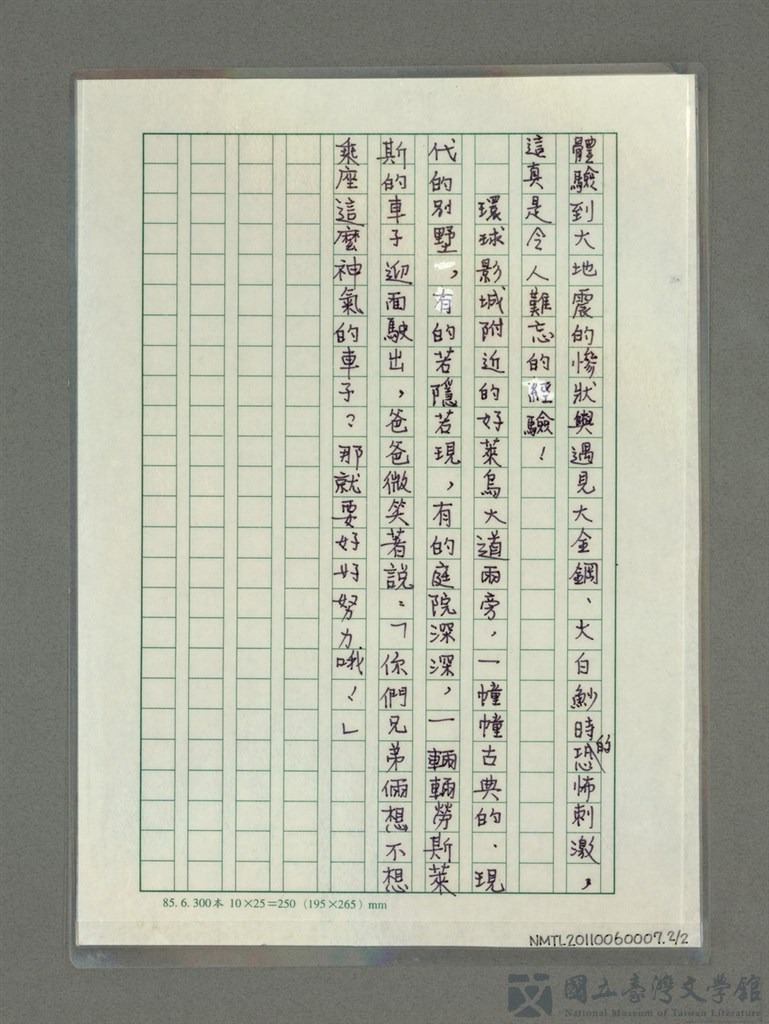 體驗到大地震的慘狀與遇見大金鋼、大白鯊時的恐怖刺激，
這真是令人難忘的經驗！
環球影城附近的好萊烏大道兩旁，一幢幢古典的．現
代的別墅，有的若隱若現，有的庭院深深，一輛輛勞斯萊
斯的車子迎面駛出，爸爸微笑著說：「你們兄弟倆想不想
乘座這麼神氣的車子？那就要好好努力哦！」
85.6.300本 10×25=250 (195×265) mm
NMTL20110060007.2/2
國立臺灣文學館
National Museum of Taiwan Literature